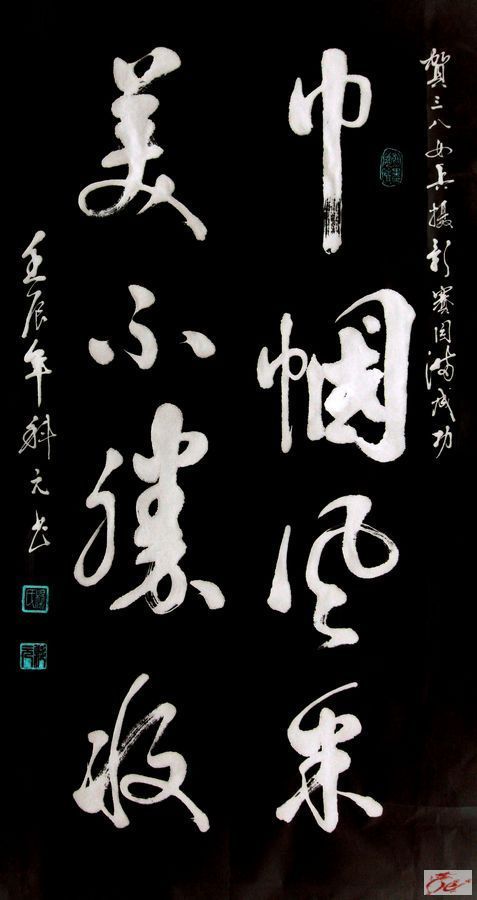 賀三八女兵摄影赛圆满成功
巾帼风采
美不勝收
壬辰年科元书